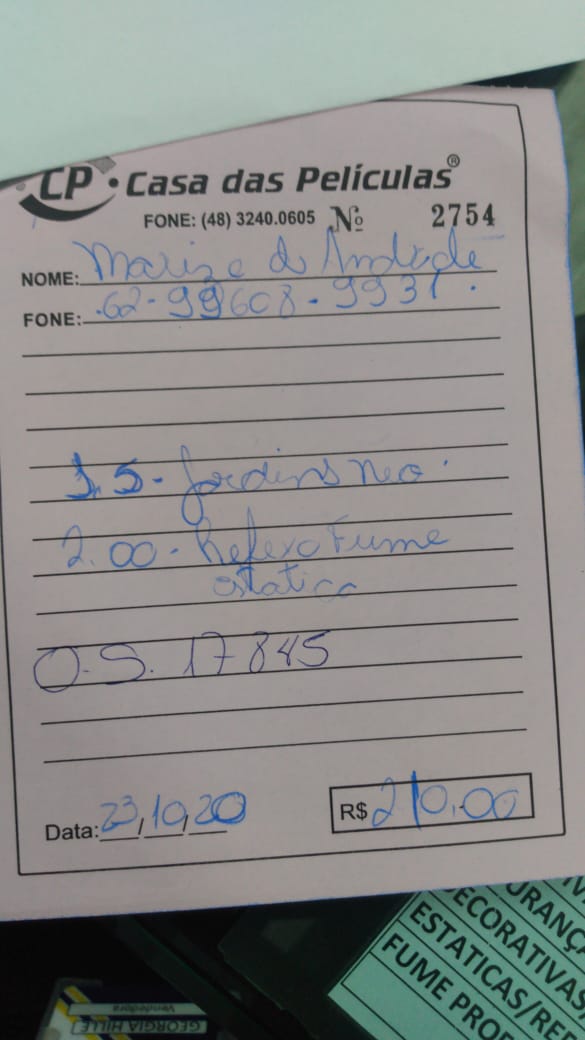 CP • Casa das Películas®
FONE: (48) 3240.0605 Nº 2754
NOME: Marize de Andrade
FONE: 62-99608-9931
1.5 - Jardins neo
2.00 - Refexo Fume
statica
O.S. 17845
Data: 23,10,20 R$ 210,00
URANÇA
DECORATIVAS
ESTATICAS/REF
FUME PROF
Vendedora
GEORGIA HILLE